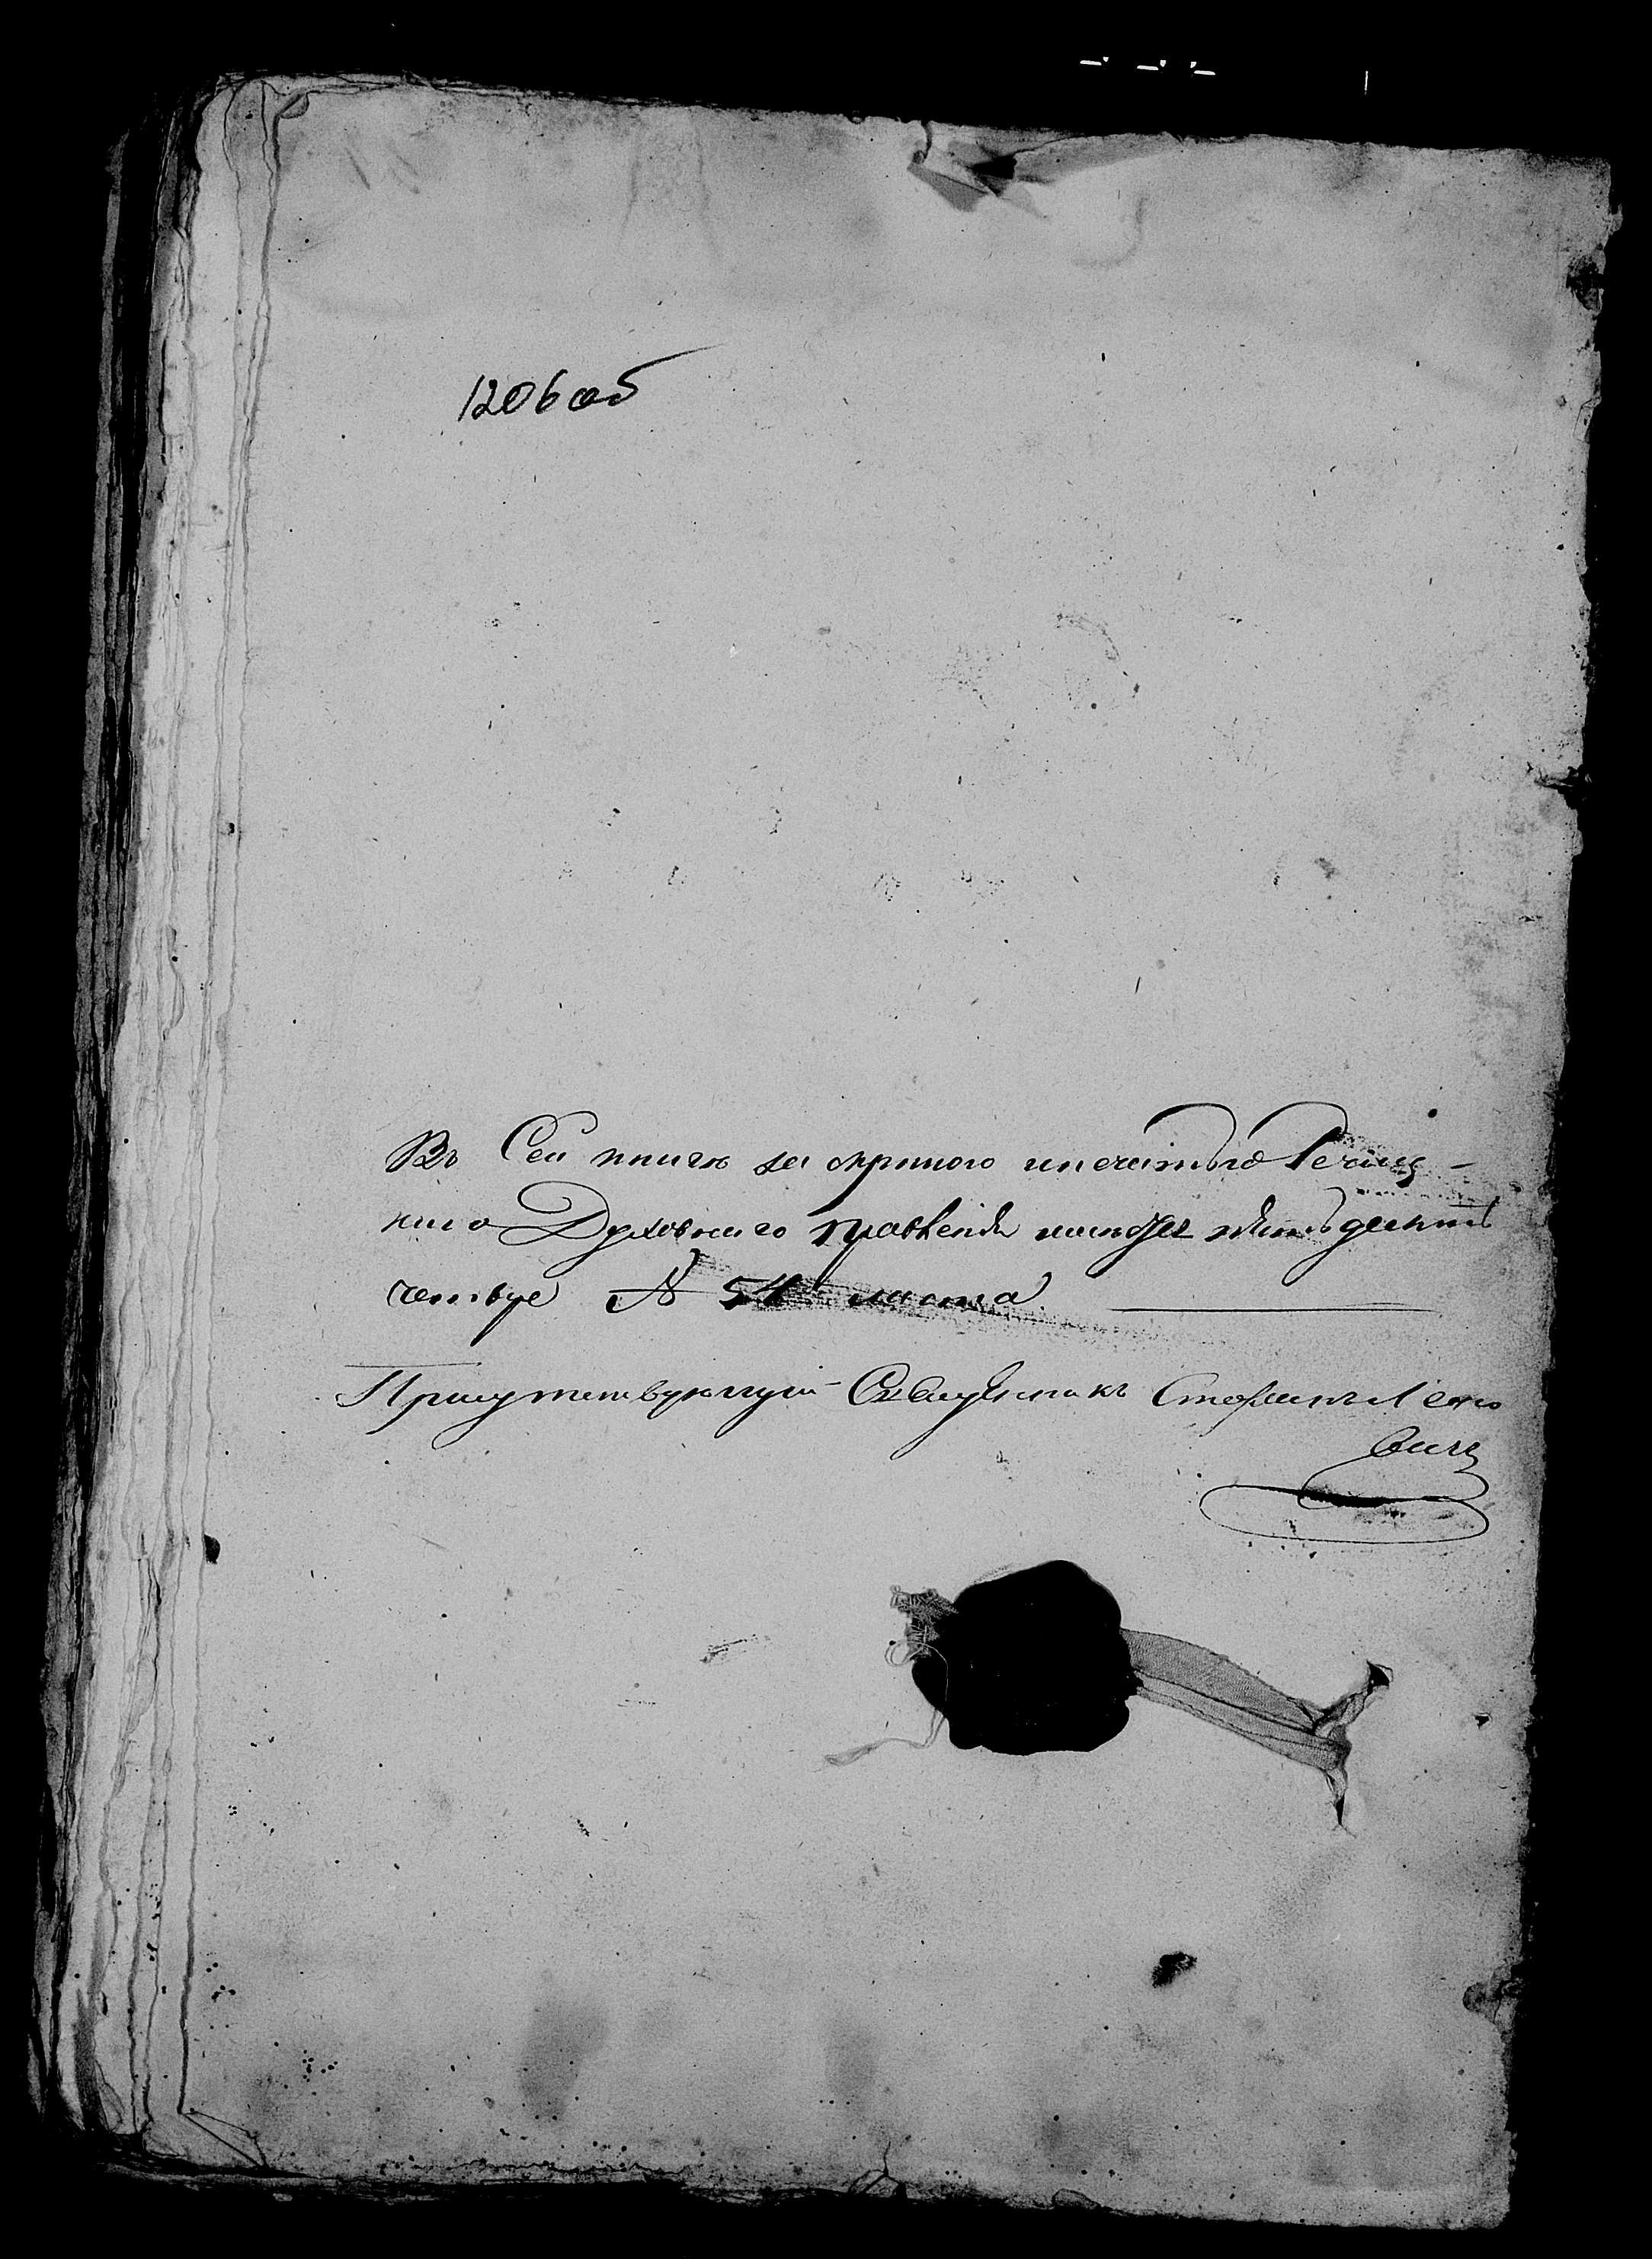 1206 об
Въ Сей книге за скрепою и печатью Речиц-
каго Духовнаго правления листовъ пятьдесятъ
четыре № 54 листа
Присутствующий Священникъ Стефанъ
вичъ